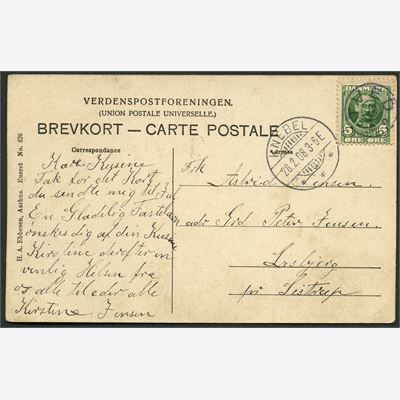 VERDENSPOSTFORENINGEN.
(UNION POSTALE UNIVERSELLE.)
BREVKORT — CARTE POSTALE
Correspondance
Adresse
H. A. Ebbesen, Aarhus. Eneret No. 426
Kære Kusine
Tak for det Kort
du sendte mig til Jul
En Glædelig Fastelavn
ønskes dig af din Kusine
Kirstine derefter en
venlig Hilsen fra
os alle til eder alle
Kirstine Jensen
Frk
Astrid Jensen
adr Grd Peter Jensen
pr
KNEBEL
28.2.08 3-6 E
DANMARK
5 5
ØRE ØRE